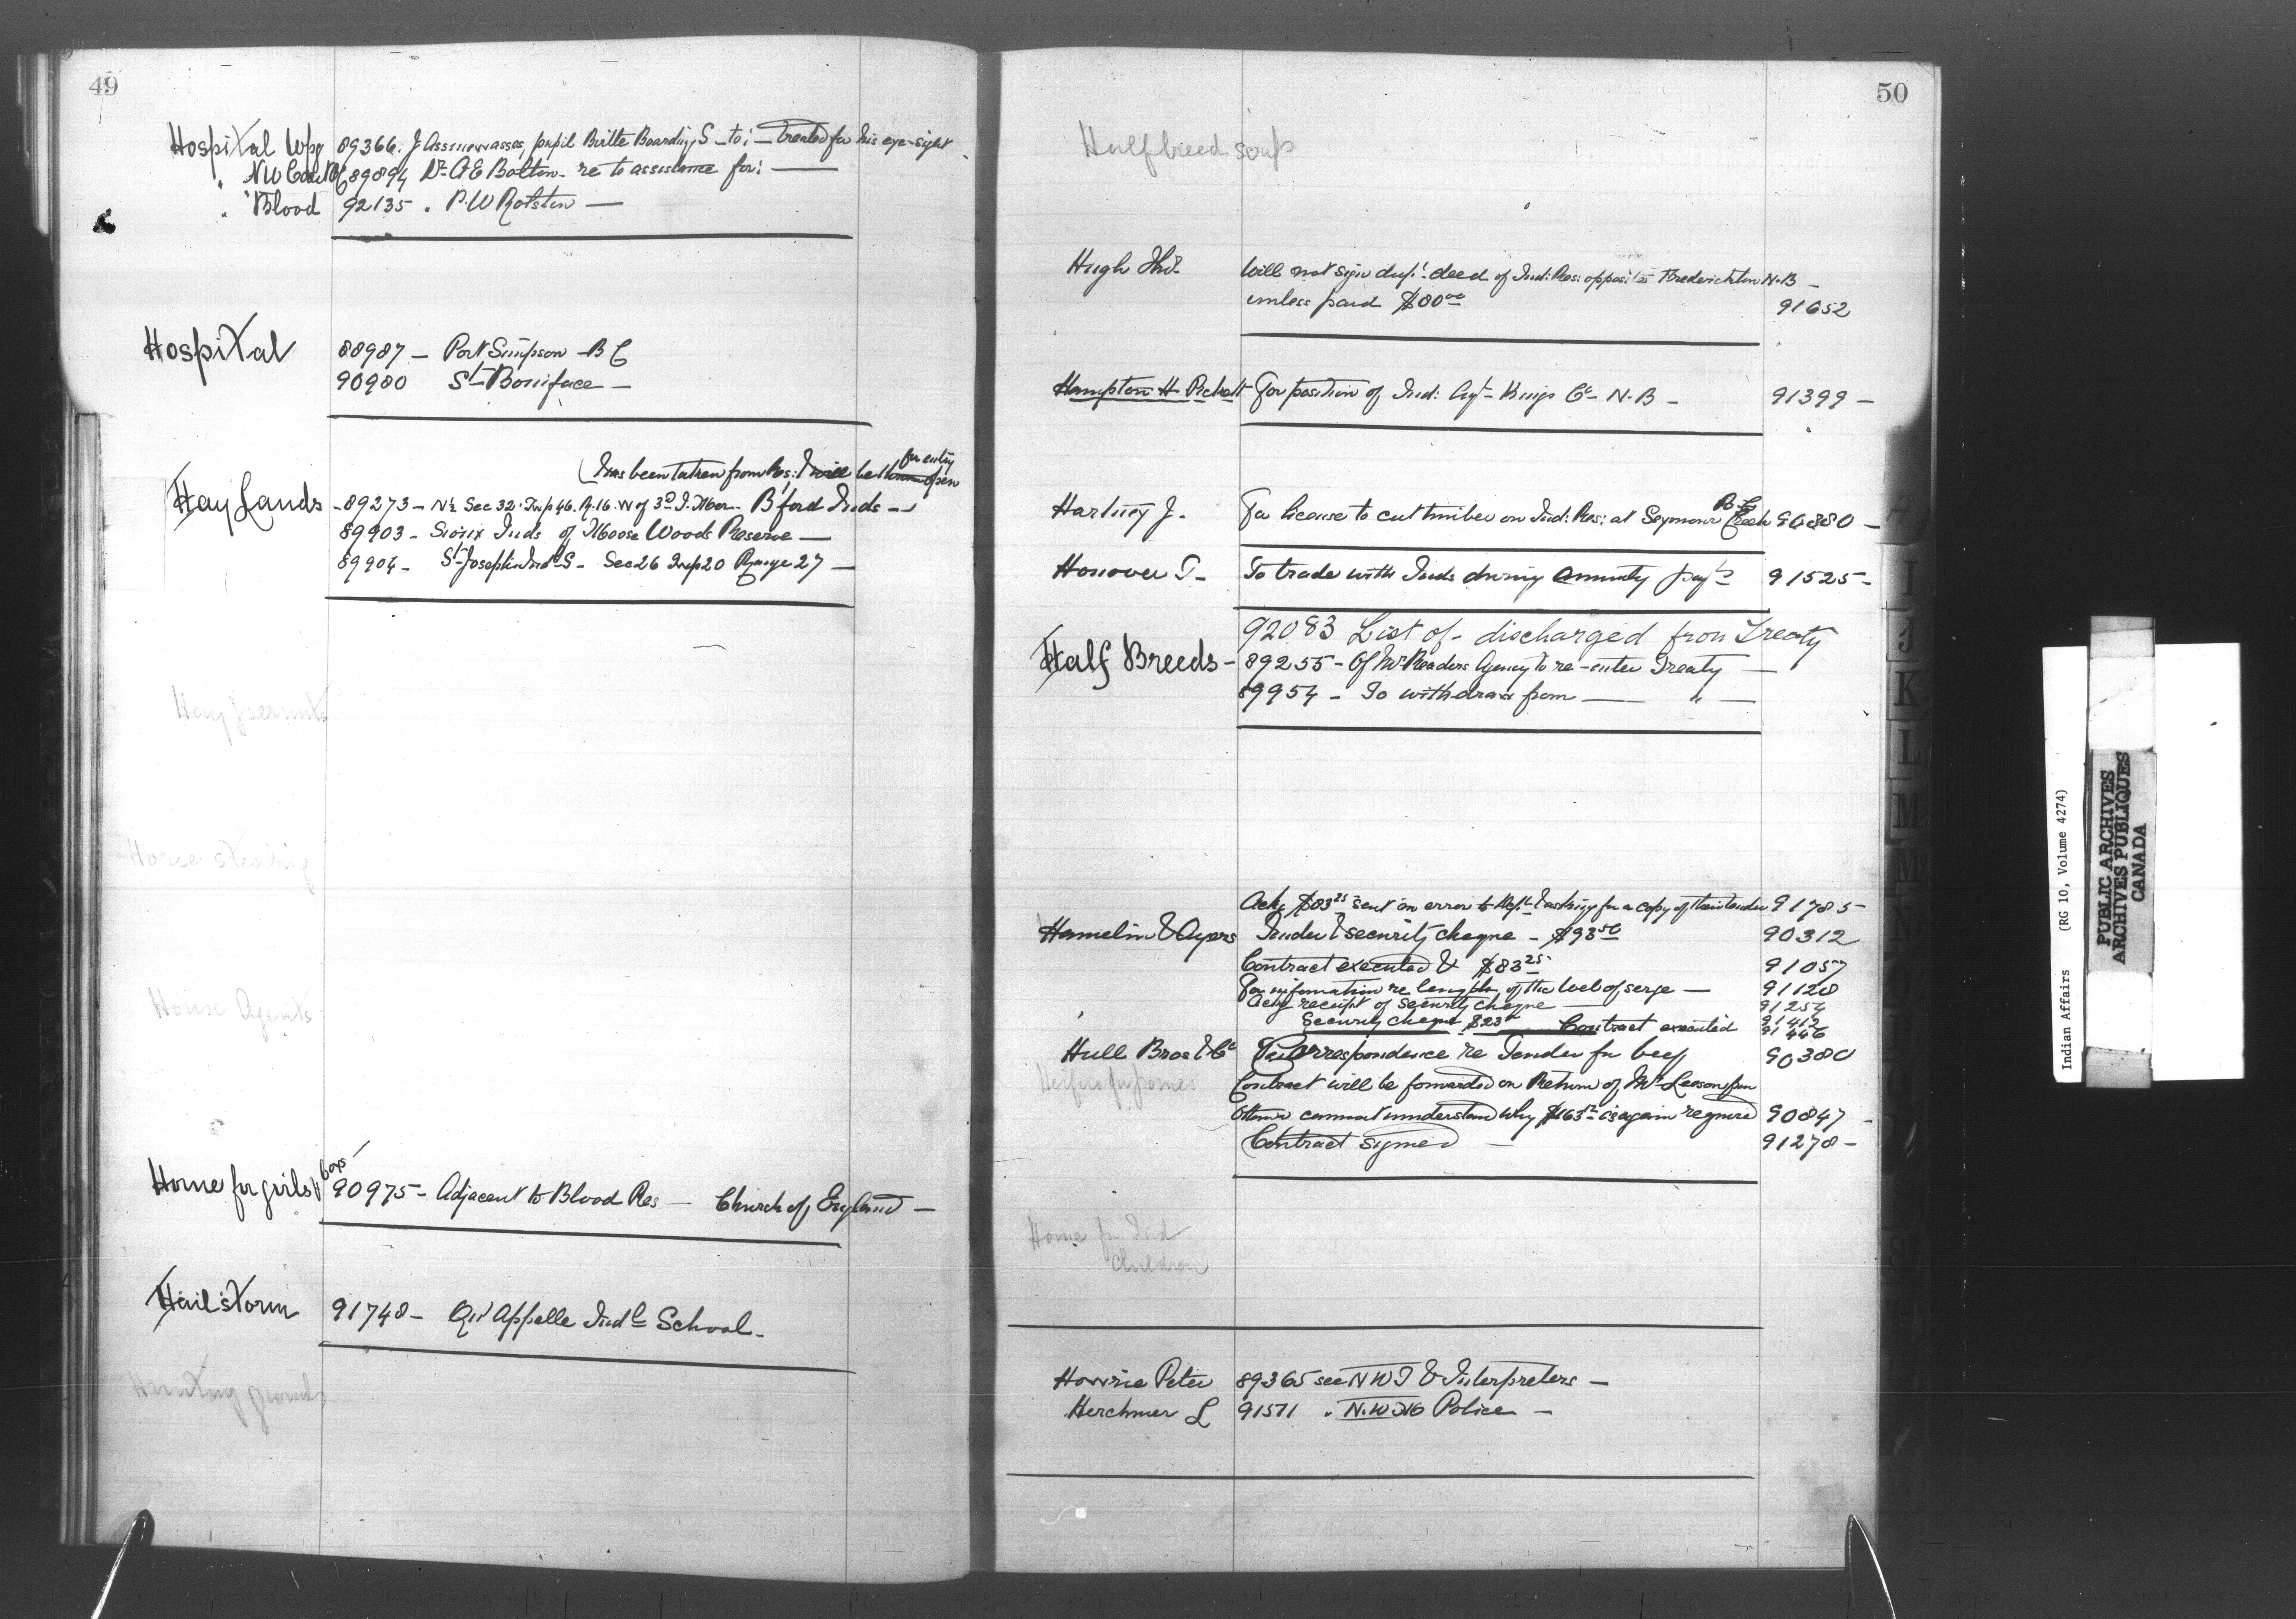 49
Hospital Wpg 89366. J. pupil Birtle Boarding S - to: - treated for his eye-sight
" N W Coast BC 89894 Dr A E Bolton - re to assistance for: -
" Blood 92135 " P. W Rolston -
Hospital 88987 - Port Simpson - B C
90980 St Boniface -
for entry
(has been taken from Res: & will be thrown open
Hay Lands - 89273 - N½ Sec 32. Twp 46. R. 16. W of 3d I. Mer. B'ford Inds -
89903 - Sioux Inds of Moose Woods Reserve -
89904 - St Joseph's Ind S - Sec 26 Twp 20 Range 27 -
Hay permits
Horse stealing
House Agents
Home for girls & boys 90975 - Adjacent to Blood Res - Church of England -
Hail storm 91748 - Qu'Appelle Indl School -
Hunting grounds
50
Halfbreed scrip
Hugh Thos. Will not sign dup: deed of Ind: Res: opposite Fredericton N.B -
unless paid $80 00 91652
Hampton H Pickett For position of Ind: Agt - Kings Co - N.B - 91399 -
B.C.
Hartney J. For license to cut timber on Ind: Res: at Seymour Creek 90880 -
Honover T - To trade with Inds during annuity payts 91525 -
92083 List of - discharged from Treaty
Half Breeds - 89255 - Of Mr Readers Agency to re-enter Treaty -
89954 - To withdraw from - " -
Ackg $83 25 sent in error to Dept & asking for a copy of their tender 91785 -
Hamelin & Ayers Tender & security cheque - $93 50 90312
Contract executed & $83 25 91057
For information re length of the web of serge - 91128
Ackg receipt of security cheque - 91254
Security cheque $23 Contract executed 91412
91446
Hull Bros & Co Correspondence re Tender for beef 90380
Heifers for ponies Contract will be forwarded on Return of Mr Leeson from
Ottawa cannot understand why $163 is again required 90847 -
Contract signed - 91278 -
Home for Ind
Children
Hourie Peter 89365 see N W T & Interpreters -
Herchmer L 91571 " N.W. Police -
I
J
K
L
M
Indian Affairs (RG 10, Volume 4274)
PUBLIC ARCHIVES
ARCHIVES PUBLIQUES
CANADA